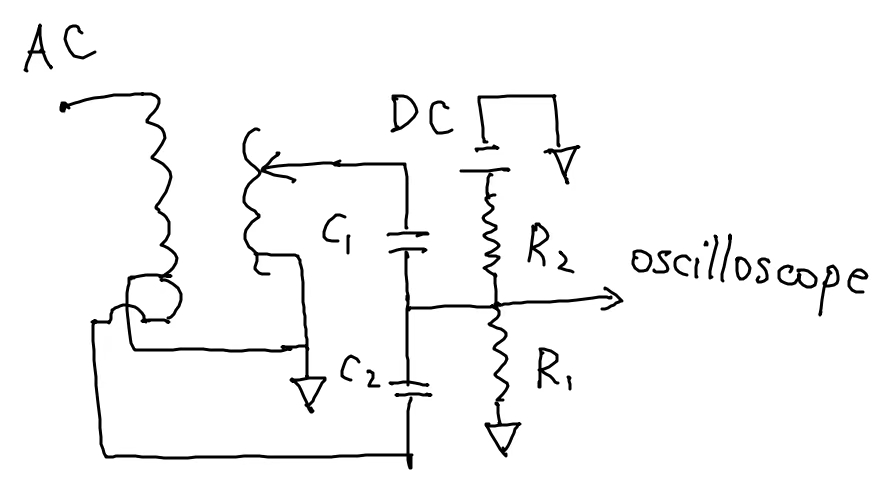 AC
DC
C1
R2
oscilloscope
C2
R1